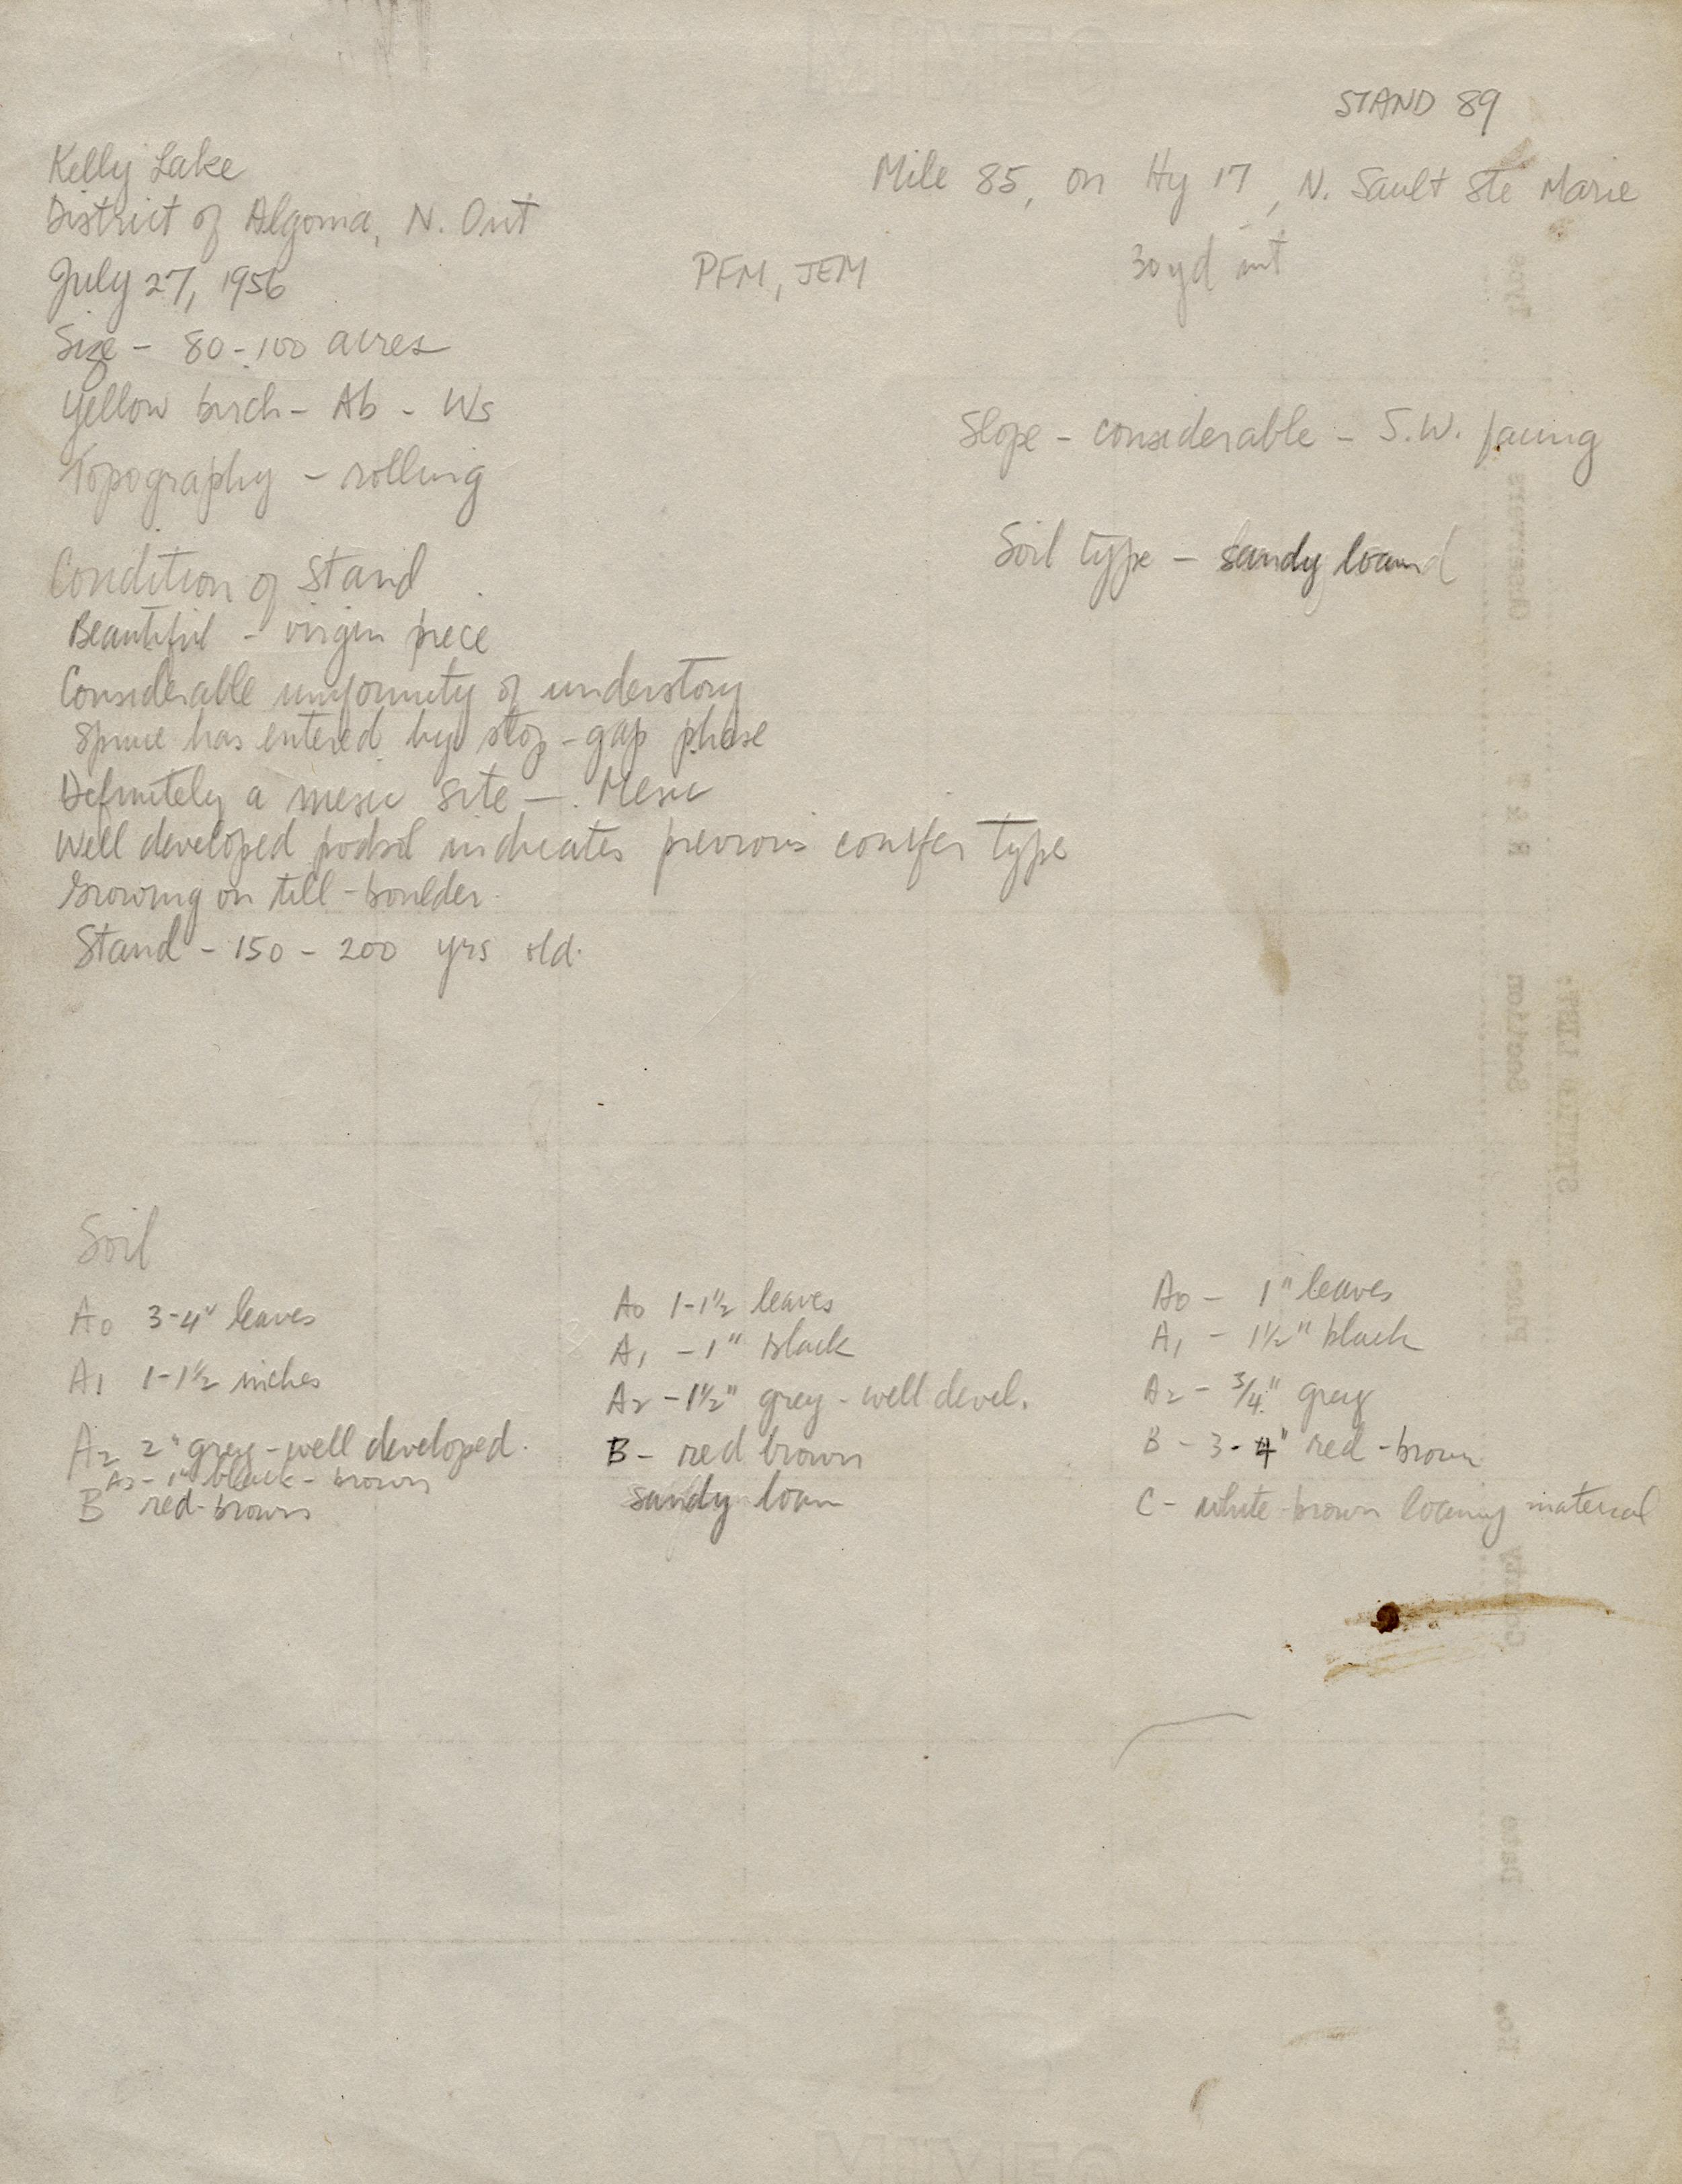 STAND 89
Kelly Lake
Mile 85, on Hy 17, N. Sault Ste Marie
District of Algoma, N. Ont
July 27, 1956
PFM, JEM
30 yd int
Size - 80-100 acres
Yellow birch - Ab - Ws
Slope - considerable - S.W. facing
Topography - rolling
Soil type - sandy loam
Condition of Stand
Beautiful - virgin piece
Considerable uniformity of understory
Spruce has entered by stop-gap phase
Definitely a mesic site - Mesic
Well developed podsol indicates previous conifer type
Growing on till-boulder.
Stand - 150 - 200 yrs old.
Soil
A0 3-4" leaves
A1 1-1½ inches
A2 2" grey - well developed.
A3 - 1" black - brown
B red-brown
A0 1-1½ leaves
A1 - 1" black
A2 - 1½" grey - well devel.
B - red brown
sandy loam
A0 - 1" leaves
A1 - 1½" black
A2 - 3/4" grey
B - 3-4" red-brown
C - white-brown loamy material